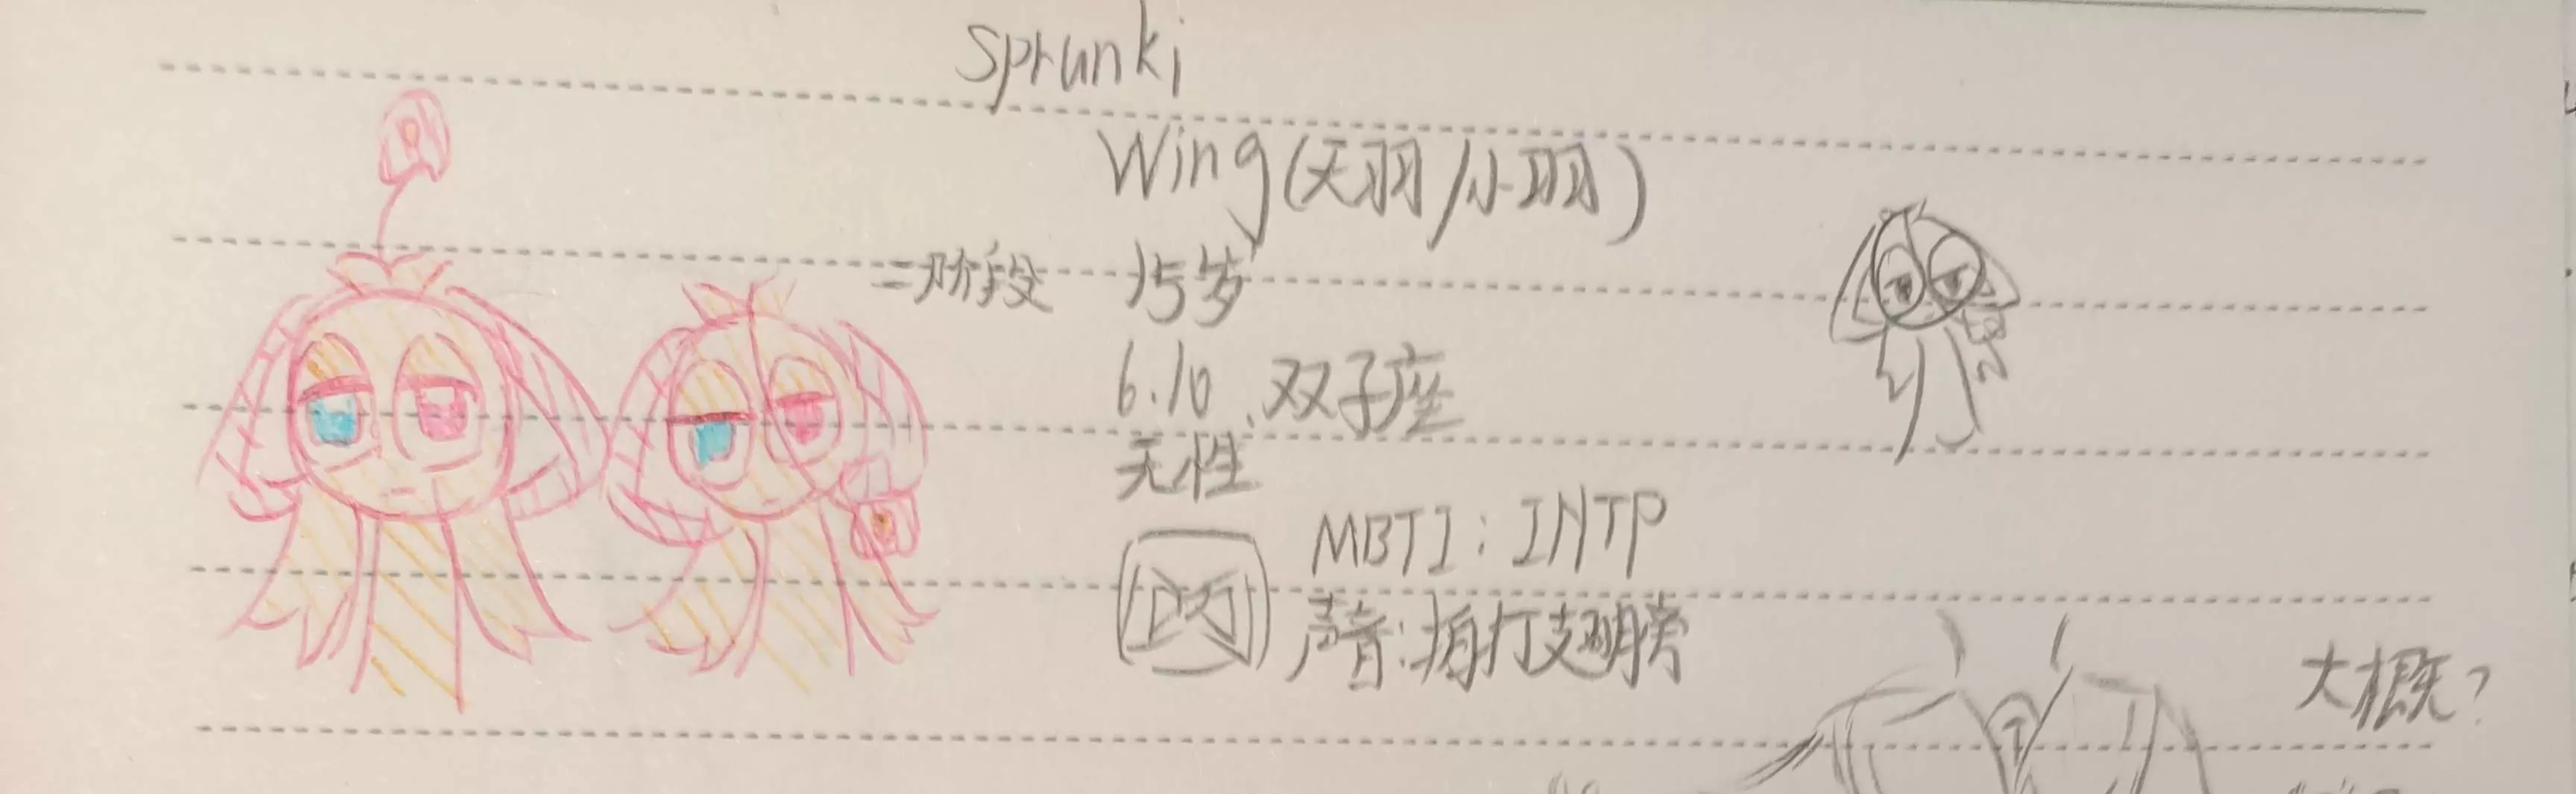 Sprunki
Wing(天羽/小羽)
二阶段 15岁
6.10.双子座
无性
MBTI: INTP
声音:拍打翅膀
大概?